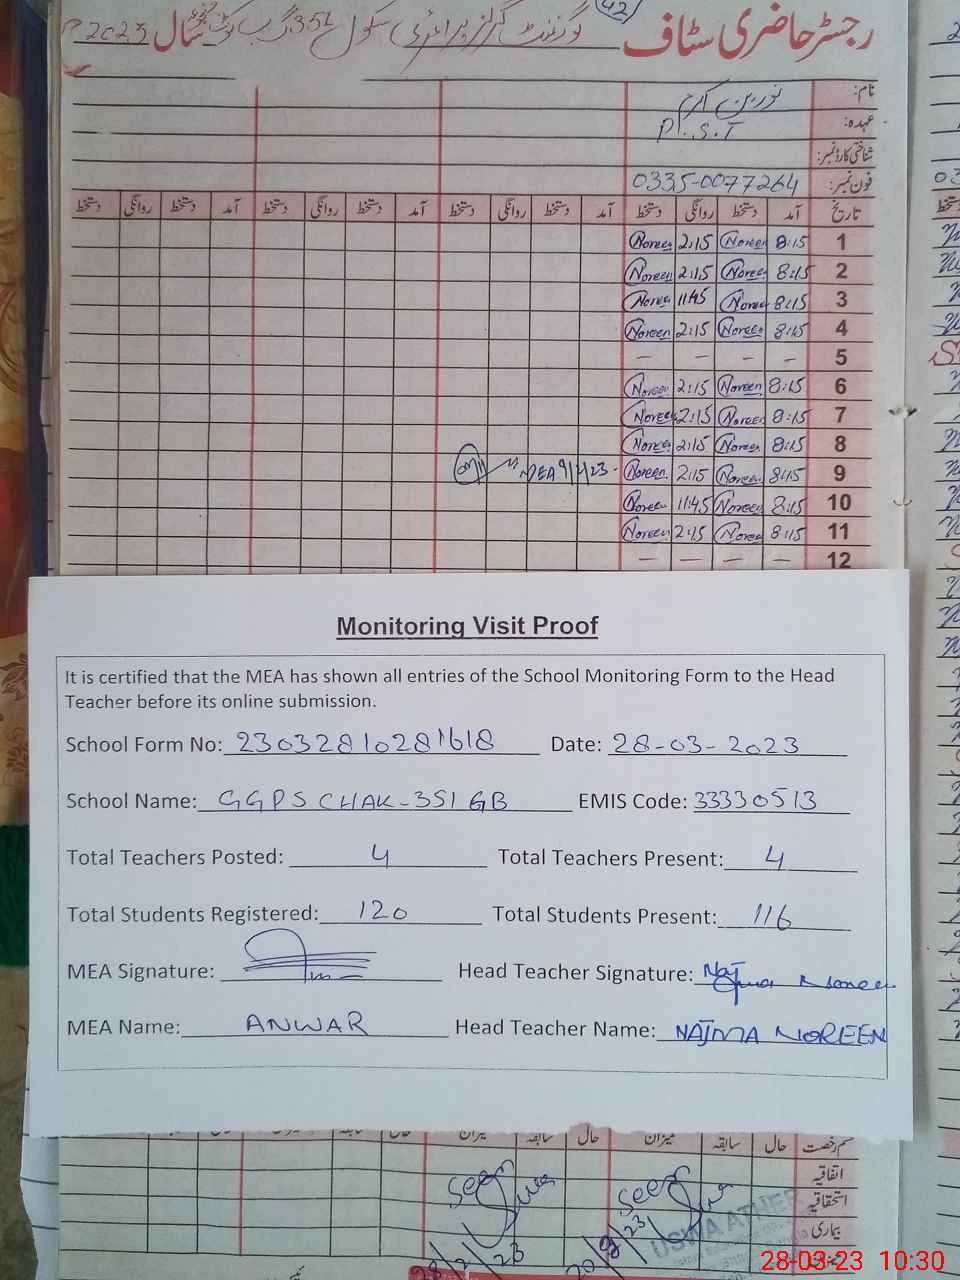 رجسٹر حاضری سٹاف گورنمنٹ گرلز پرائمری سکول 351 گ ب سال 2023
42
نام: نورین اکرم
عہدہ: P.S.T
شناختی کارڈ نمبر:
فون نمبر: 0335-0077264
تاریخ آمد دستخط روانگی دستخط آمد دستخط روانگی دستخط آمد دستخط روانگی دستخط آمد دستخط روانگی دستخط
1 8:15 Noreen 2:15 Noreen
2 8:15 Noreen 2:15 Noreen
3 8:15 Noreen 11:45 Noreen
4 8:15 Noreen 2:15 Noreen
5 — — — —
6 8:15 Noreen 2:15 Noreen
7 8:15 Noreen 2:15 Noreen
8 8:15 Noreen 2:15 Noreen
9 8:15 Noreen 2:15 Noreen MEA
10 8:15 Noreen 11:45 Noreen
11 8:15 Noreen 2:15 Noreen
12 — — — —
Monitoring Visit Proof
It is certified that the MEA has shown all entries of the School Monitoring Form to the Head
Teacher before its online submission.
School Form No: 23032810281618 Date: 28-03-2023
School Name: GGPS CHAK-351 GB EMIS Code: 33330513
Total Teachers Posted: 4 Total Teachers Present: 4
Total Students Registered: 120 Total Students Present: 116
MEA Signature: Head Teacher Signature: Najma Noreen
MEA Name: ANWAR Head Teacher Name: NAJMA NOREEN
قسم رخصت حال سابقہ میزان حال سابقہ میزان
اتفاقیہ
استحقاقیہ
بیماری
seen seen
28-03-23 10:30